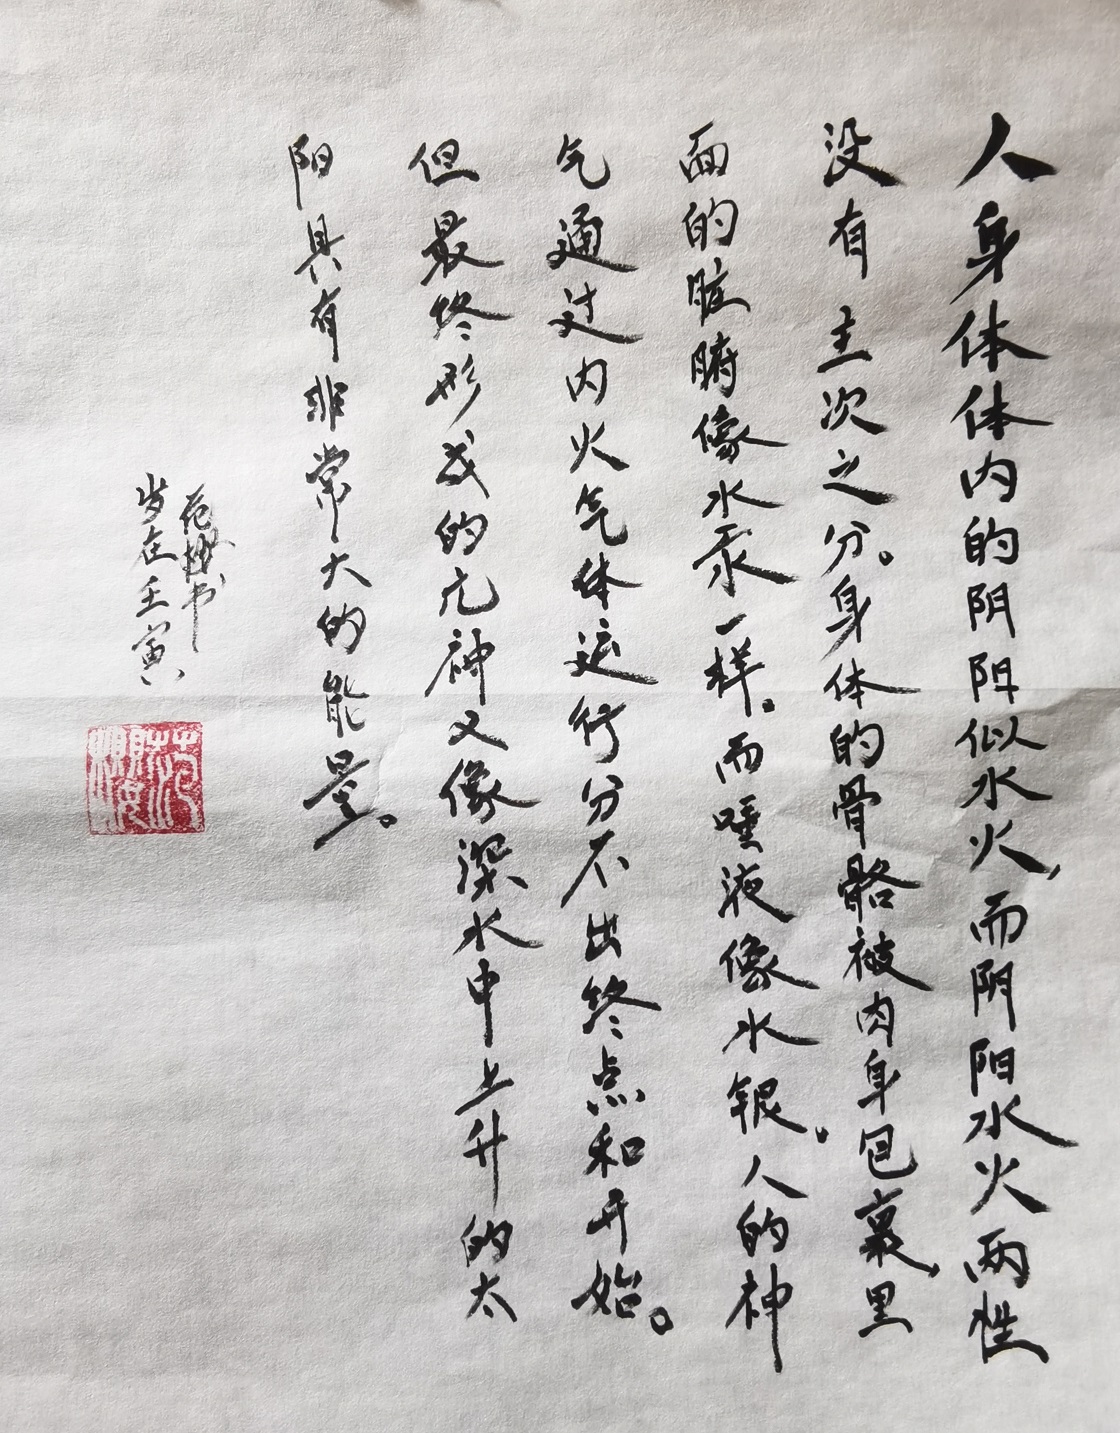 人身体体内的阴阳似水火，而阴阳水火两性
没有主次之分。身体的骨骼被肉身包裹，里
面的脏腑像水汞一样。而唾液像水银。人的神
气通过内火气体运行分不出终点和开始。
但最终形成的元神又像深水中上升的太
阳具有非常大的能量。
书
岁在壬寅